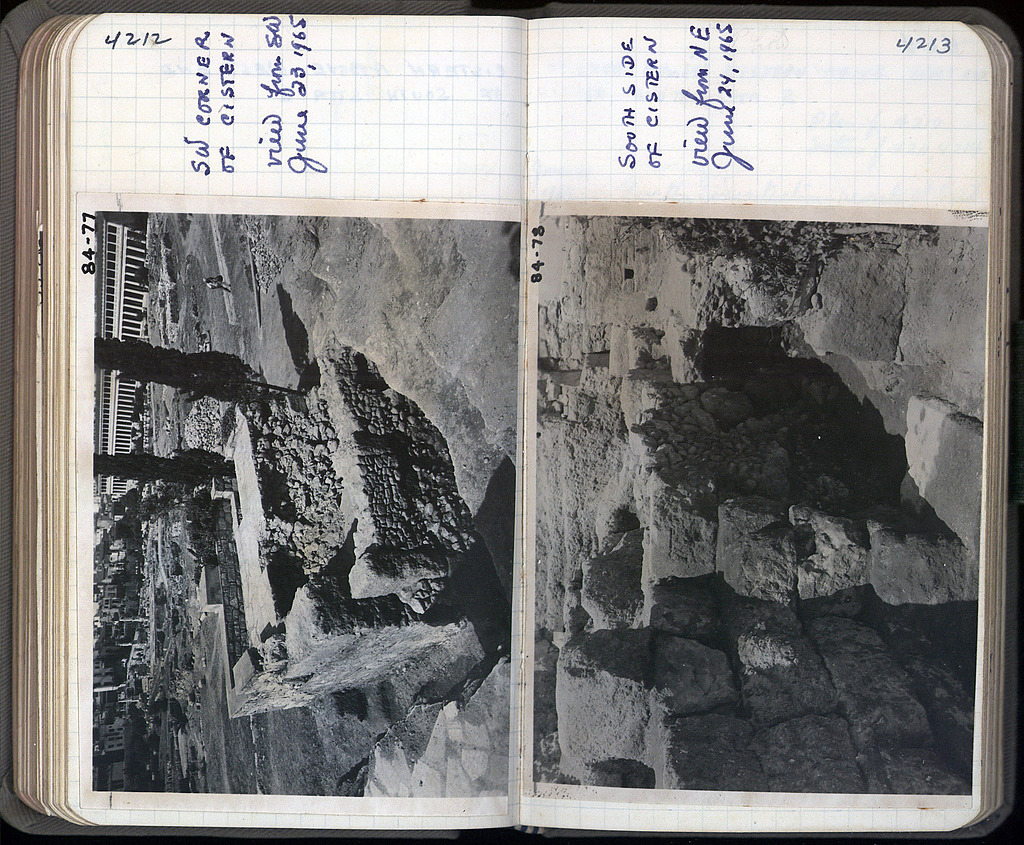 4212
SW CORNER
OF CISTERN
view from SW
June 23, 1965
84-77
4213
SOUTH SIDE
OF CISTERN
view from NE
June 24, 1965
84-78